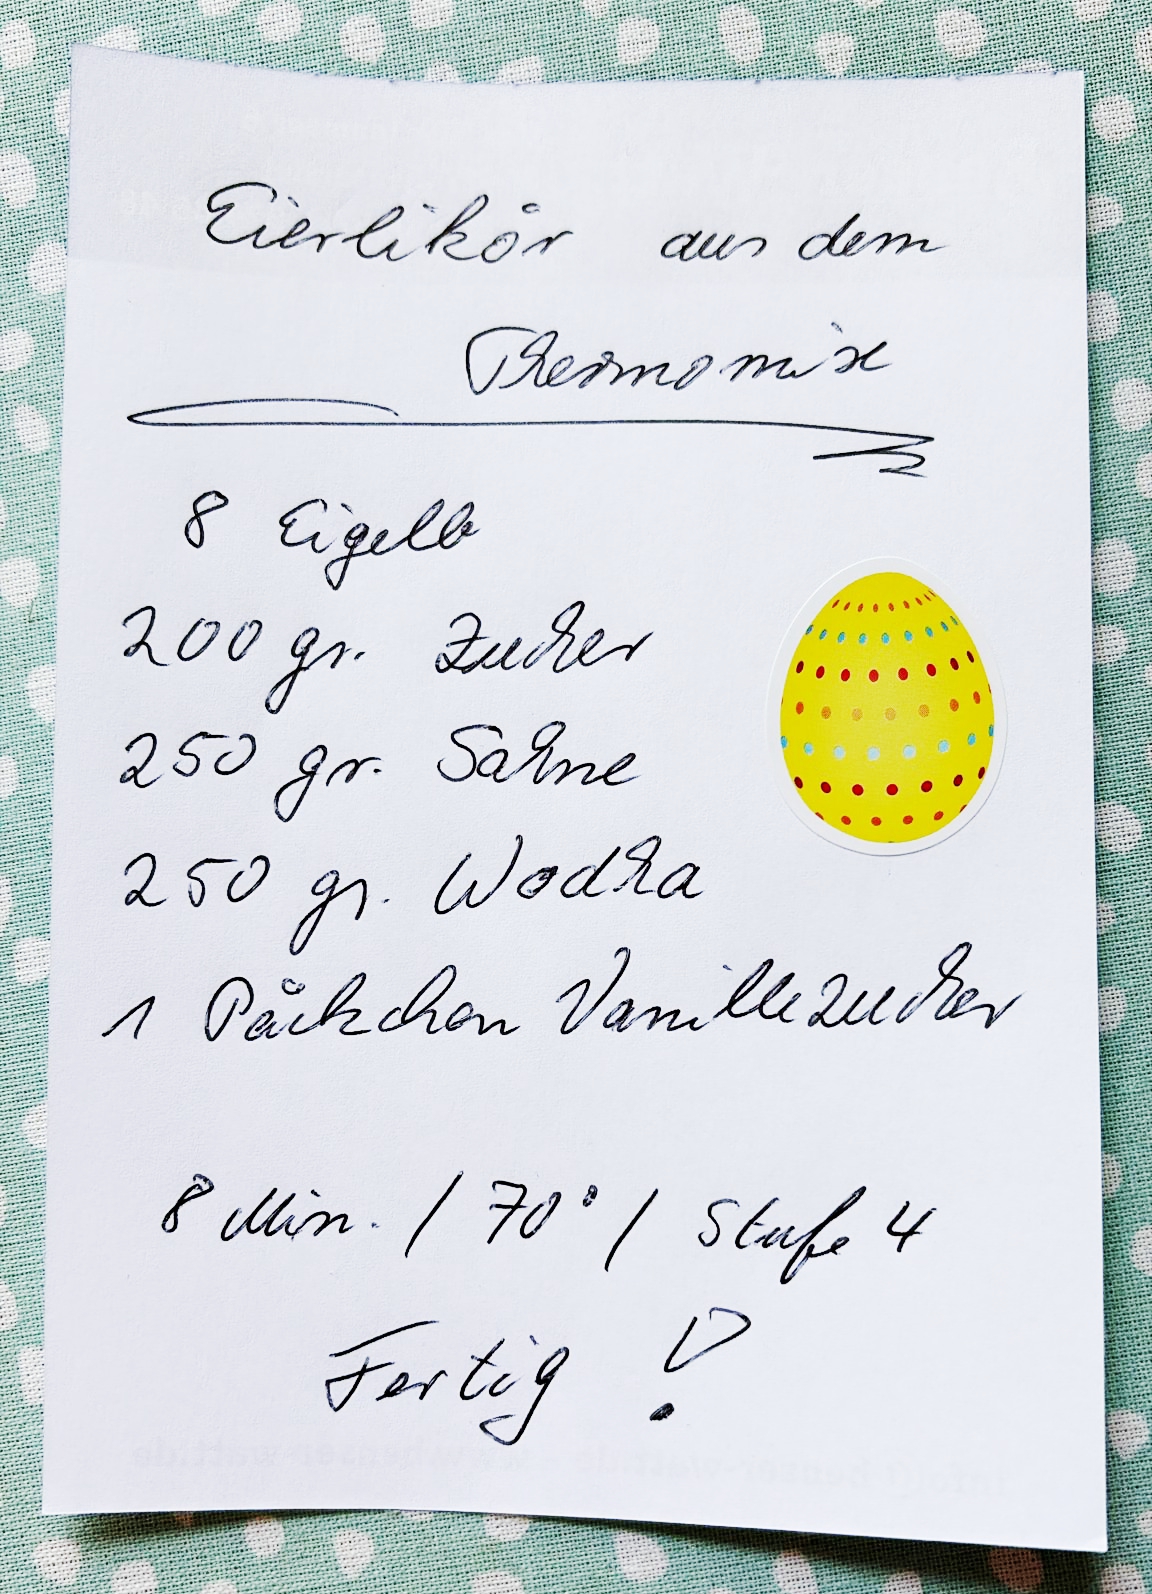 Eierlikör aus dem
Thermomix
8 Eigelb
200 gr. Zucker
250 gr. Sahne
250 gr. Wodka
1 Päckchen Vanillezucker
8 Min. / 70° / Stufe 4
Fertig !